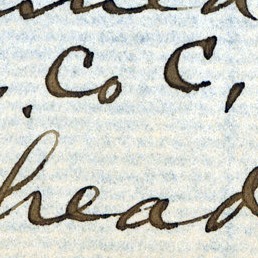 . Co C,
head